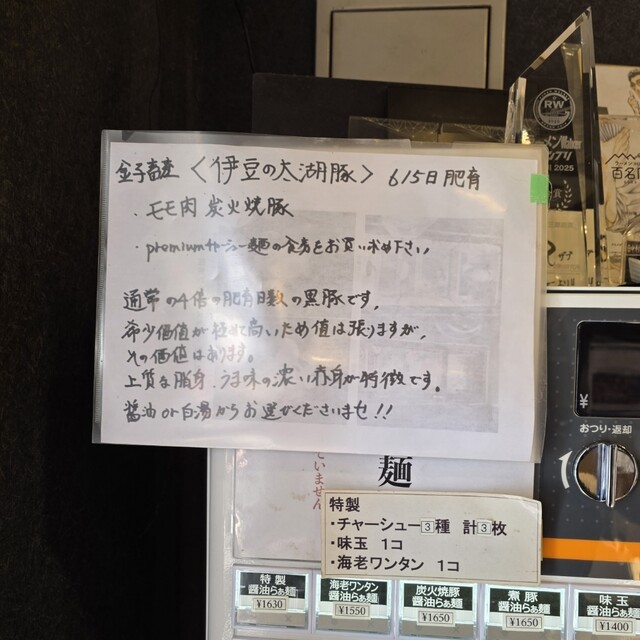 金子畜産 〈伊豆の太湖豚〉 615日肥育
・モモ肉 炭火焼豚
・premiumチャーシュー麺の食券をお買い求め下さい
通常の4倍の肥育日数の黒豚です。
希少価値が極めて高いため値は張りますが、
その価値はあります。
上質な脂身、うま味の濃い赤身が特徴です。
醤油or白湯からお選びくださいませ!!
RW
2025
百名店
¥
おつり・返却
麺
ていません
特製
・チャーシュー3種 計3枚
・味玉 1コ
・海老ワンタン 1コ
特製
醤油らぁ麺
¥1630
海老ワンタン
醤油らぁ麺
¥1550
炭火焼豚
醤油らぁ麺
¥1650
煮豚
醤油らぁ麺
¥1650
味玉
醤油らぁ麺
¥1400